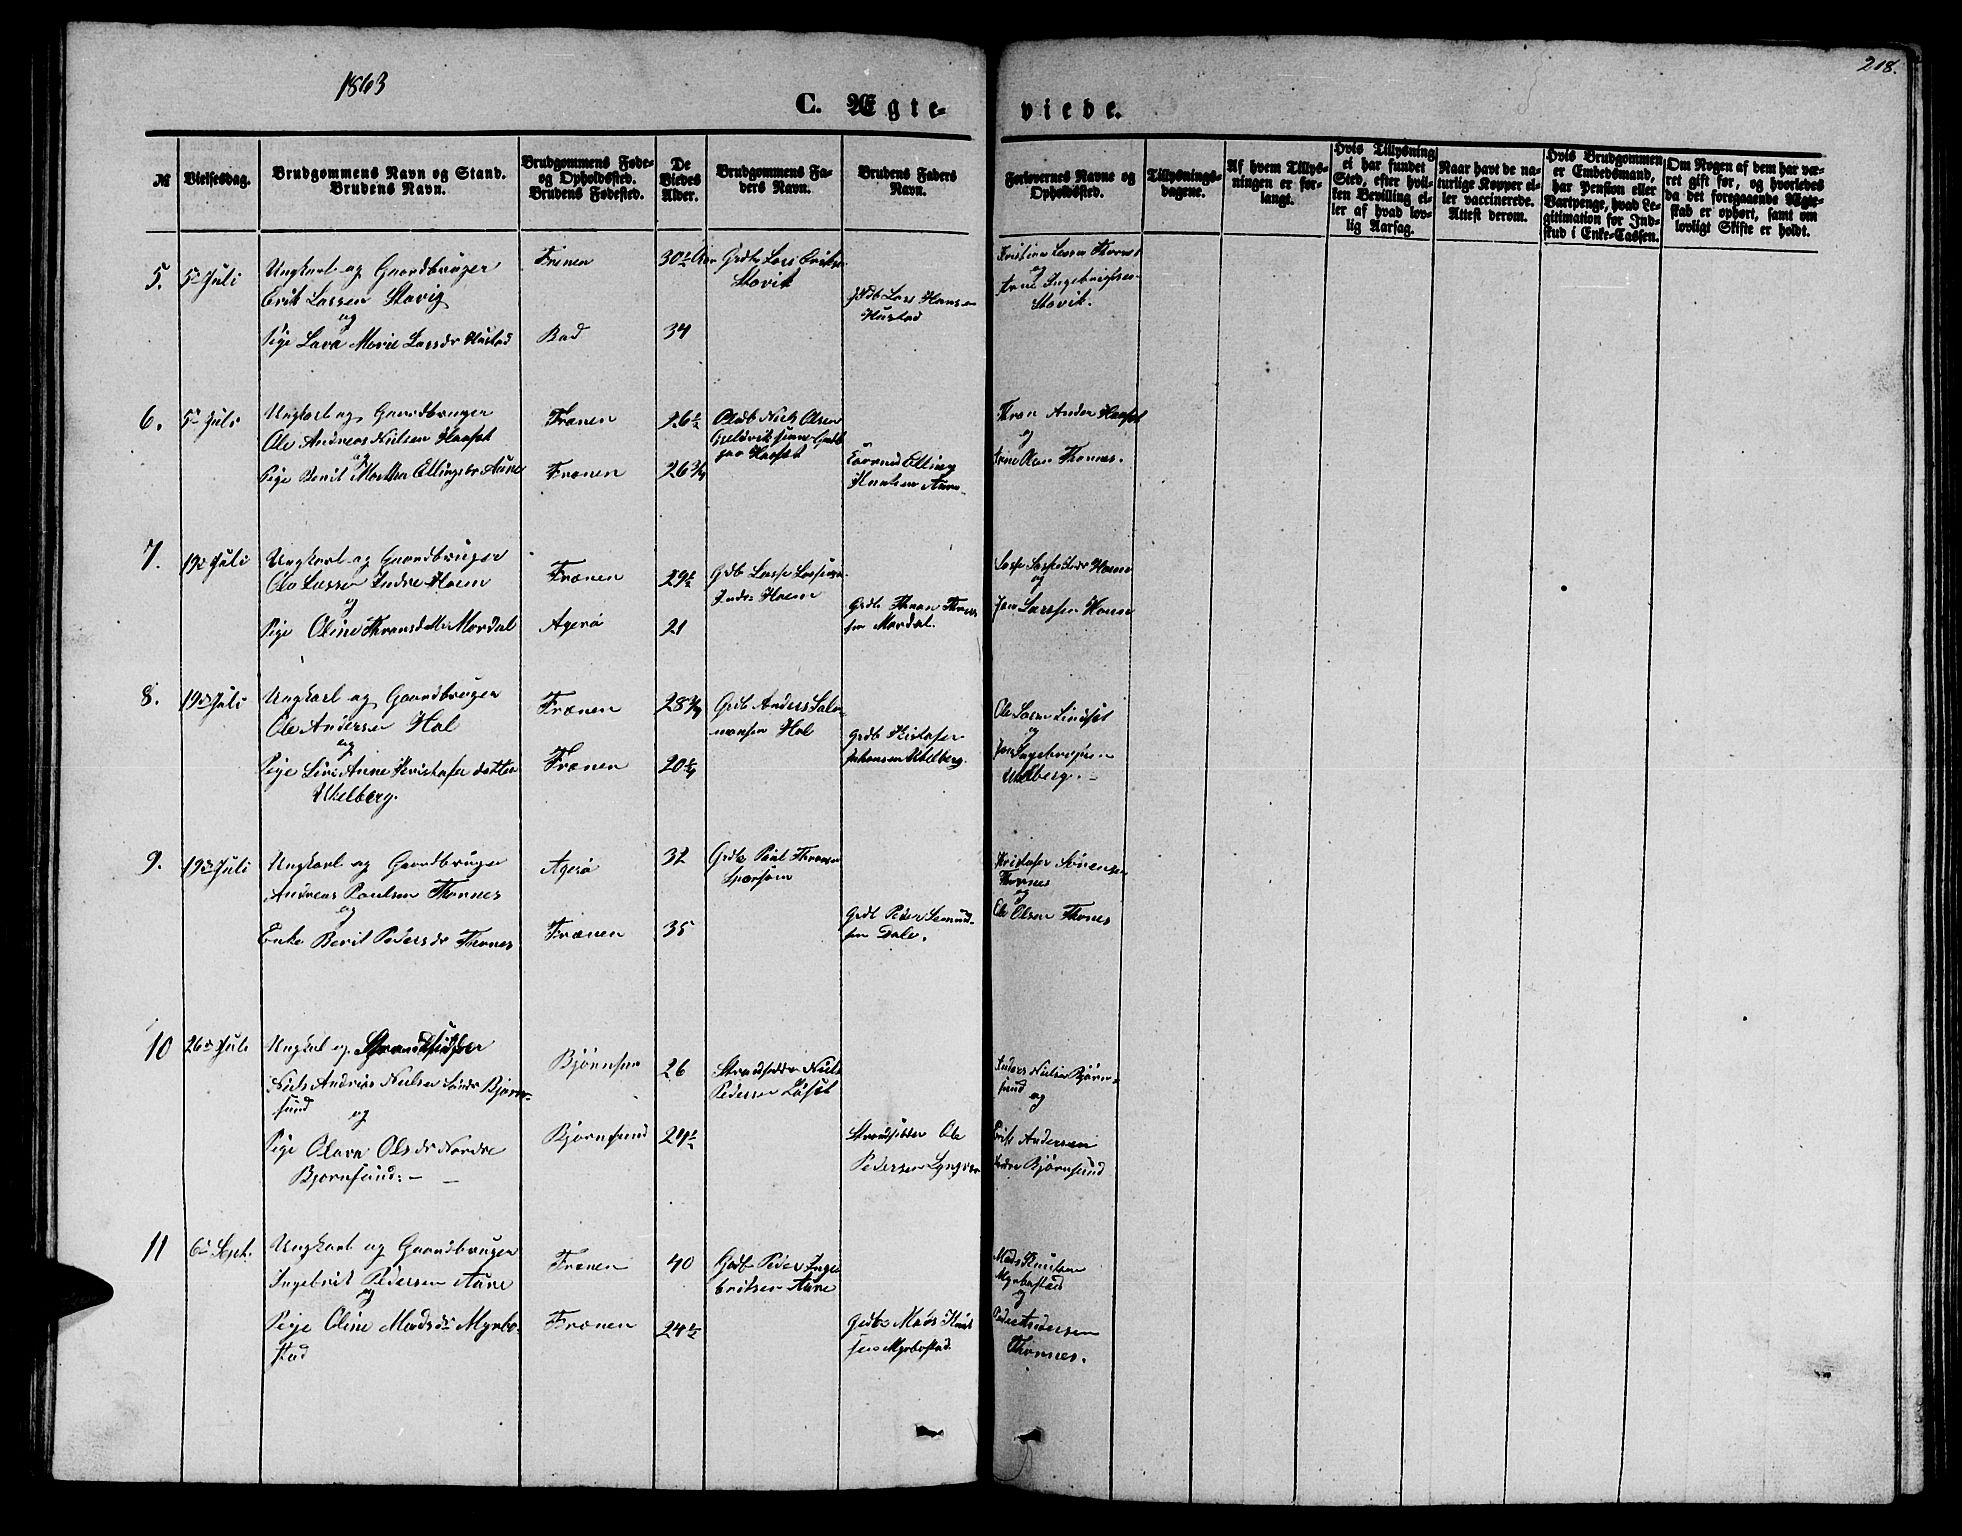 1863
218.
C. Ægte-
viede.
№
Vielsesdag.
Brudgommens Navn og Stand.
Brudens Navn.
Brudgommens Føde-
og Opholdssted.
Brudens Fødested.
De
Viedes
Alder.
Brudgommens Fa-
ders Navn.
Brudens Faders
Navn.
Forlovernes Navne og
Opholdssted.
Tillysnings-
dagene.
Af hvem Tillys-
ningen er for-
langt.
Hvis Tillysning
ei har fundet
Sted, efter hvil-
ken Bevilling el-
ler af hvad lov-
lig Aarsag.
Naar havt de na-
turlige Kopper el-
ler vaccinerede.
Attest derom.
Hvis Brudgommen
er Embedsmand,
har Pension eller
Vartpenge, hvad Le-
gitimation for Ind-
skud i Enke-Cassen.
Om Nogen af dem har væ-
ret gift før, og hvorledes
da det foregaaende Ægte-
skab er ophørt, samt om
lovligt Skifte er holdt.
5.
5te Juli
Ungkarl og Gaardbruger
Erik Larsen Stavig
og
Pige Lava Marie Larsdr Hustad
Frænen
Bud
30½ Aar
34
Grdb Lars Eriksn
Stavik
Grdb Lars Hansen
Hustad
og
Arne Ingebrigtsen
Stavik.
6.
5te Juli
Ungkarl og Gaardbruger
Ole Andreas Nielsen Haaset
og
Pige Berit Martha Ellingsdr Aune
Frænen
Frænen
26½
26¾
Niels Olsen
Haaset
Elling
Knutsen Aune
og
Thornes.
7.
19de Juli
Ungkarl og Gaardbruger
Ole Larsen Indre Harem
og
Pige Oline Thronsdatter Mordal
Frænen
Agerø
29½
21
Grdb Lasse
Indre
Grdb Thron Thron-
sen Mordal.
og
Jon Larssen
8.
19de Juli
Ungkarl og Gaardbruger
Ole Andersen Hol
og
Pige Siri Anne Kristofer datter
Ukelberg.
Frænen
Frænen
28¾
20¼
Grdb Anders Salo-
monsen Hol
Grdb Kristofer
Johansen Ukelberg.
Ole Lindset
og
Jon Ingebrigtsen
Ukelberg.
9.
19de Juli
Ungkarl og Gaardbruger
Andreas Paulsen Thornes
og
Enke Berit Pedersdr Thornes
Agerø
Frænen
32
35
Grdb Paul Thronsen
Grdb Peder Semund-
sen Dale.
Kristofer Sørensen
Thornes
og
Ole Olsen Thornes
10
26de Juli
Ungkarl og Strandsidder
Niels Andreas Nielsen Søndre Bjørn-
sund
og
Pige Olava Olsdr Nordre
Bjørnsund.
Bjørnsun
Bjørnsund
26
24½
Strandsidder Niels
Pedersen
Strandsidder Ole
Pedersen
Anders Nielsen Bjørn-
sund
og
Erik Andersen
Bjørnsund
11
6te Sept.
Ungkarl og Gaardbruger
Ingebrit Pedersen Aune
og
Pige Oline Madsdr Myrbo-
stad
Frænen
Frænen
40
24½
Grdb Peder Inge-
britsen Aune
Grdb Mads Knut-
sen Myrbostad.
Mads Knutsen
Myrbostad
og
Peder Andersen
Thornes.